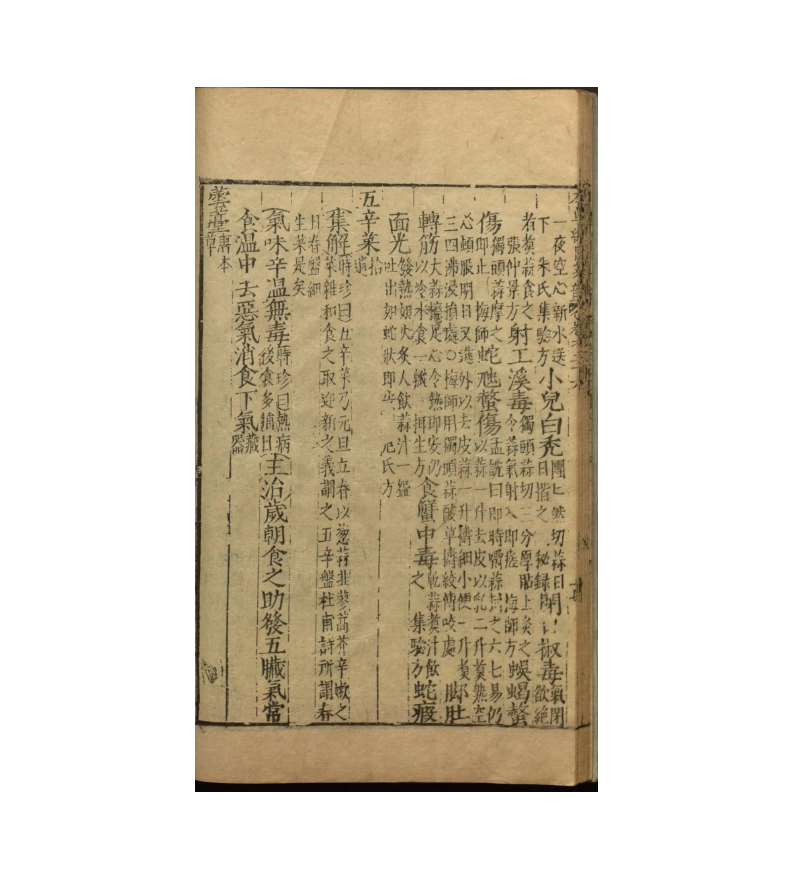 一夜空心新水送
下 朱氏集驗方小兒白禿團 切蒜日
日揩之 秘錄 椒毒氣閉
欲絶
者煮蒜食之
張仲景方射工溪毒獨頭蒜切三分厚貼上灸之
令蒜氣射入即瘥 梅師方蜈蝎螫
傷獨頭蒜摩之
即止 梅師蛇虺螫傷孟詵曰即時嚼蒜封之六七易仍
以蒜一升去皮以乳二升煮熟空
心頓服明日又進外以去皮蒜一升擣細小便一升煮
三四沸浸損處○梅師用獨頭蒜酸草擣絞傅咬處 脚肚
轉筋大蒜擦足心令熱即安仍
以冷水食一瓣 攝生方食蟹中毒乾蒜煮汁飲
之 集驗方蛇瘕
面光發熱如火炙人飲蒜汁一盌
吐出如蛇狀即安 危氏方
五辛菜拾
遺
集解時珍曰五辛菜乃元旦立春以葱蒜韭蓼蒿芥辛嫩之
菜雜和食之取迎新之義謂之五辛盤杜甫詩所謂春
日春盤細
生菜是矣
氣味辛溫無毒時珍曰熱病
後食多損目主治歲朝食之助發五臟氣常
食溫中去惡氣消食下氣藏
器
蕓薹唐本
草